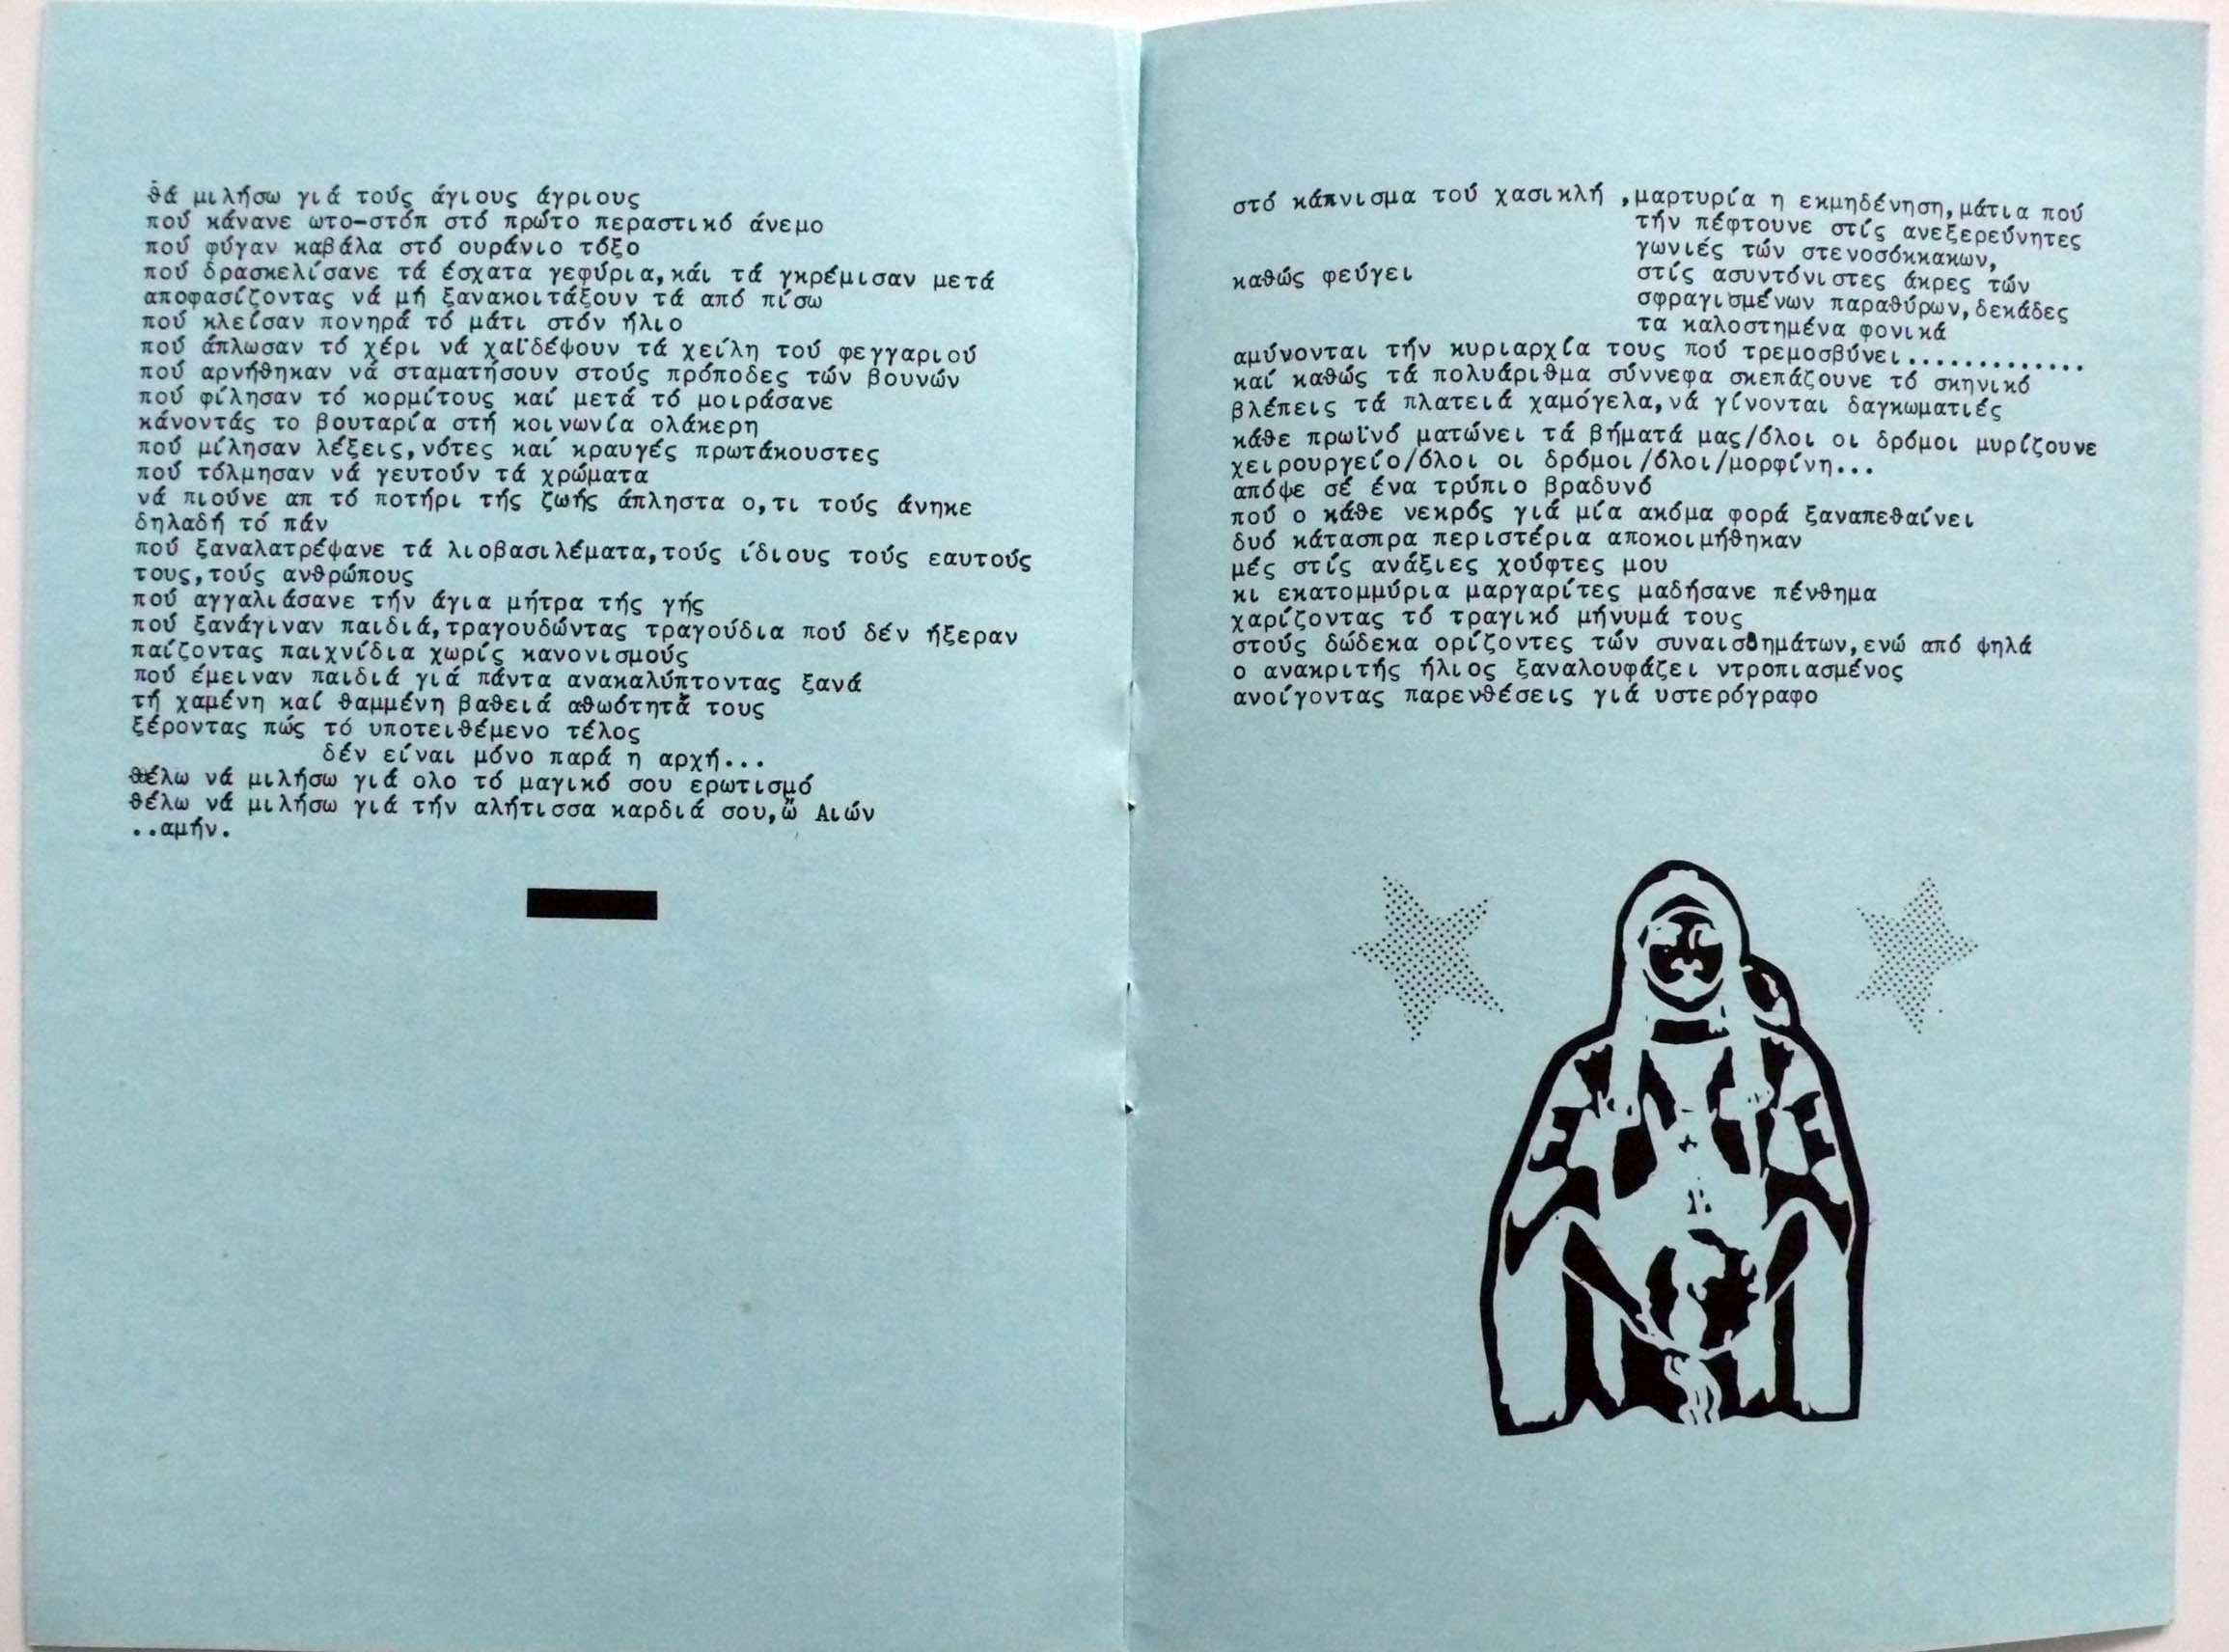 θά μιλήσω γιά τούς άγιους άγριους
πού κάνανε ωτο-στόπ στό πρώτο περαστικό άνεμο
πού φύγαν καβάλα στό ουράνιο τόξο
πού δρασκελίσανε τά έσχατα γεφύρια,κάι τά γκρέμισαν μετά
αποφασίζοντας νά μή ξανακοιτάξουν τά από πίσω
πού κλείσαν πονηρά τό μάτι στόν ήλιο
πού άπλωσαν τό χέρι νά χαϊδέψουν τά χείλη τού φεγγαριού
πού αρνήθηκαν νά σταματήσουν στούς πρόποδες τών βουνών
πού φίλησαν τό κορμίτους καί μετά τό μοιράσανε
κάνοντάς το βουταρία στή κοινωνία ολάκερη
πού μίλησαν λέξεις,νότες καί κραυγές πρωτάκουστες
πού τόλμησαν νά γευτούν τά χρώματα
νά πιούνε απ τό ποτήρι τής ζωής άπληστα ο,τι τούς άνηκε
δηλαδή τό πάν
πού ξαναλατρέψανε τά λιοβασιλέματα,τούς ίδιους τούς εαυτούς
τους,τούς ανθρώπους
πού αγγαλιάσανε τήν άγια μήτρα τής γής
πού ξανάγιναν παιδιά,τραγουδώντας τραγούδια πού δέν ήξεραν
παίζοντας παιχνίδια χωρίς κανονισμούς
πού έμειναν παιδιά γιά πάντα ανακαλύπτοντας ξανά
τή χαμένη καί θαμμένη βαθειά αθωότητά τους
ξέροντας πώς τό υποτειθέμενο τέλος
δέν είναι μόνο παρά η αρχή...
θέλω νά μιλήσω γιά ολο τό μαγικό σου ερωτισμό
θέλω νά μιλήσω γιά τήν αλήτισσα καρδιά σου,ώ Αιών
..αμήν.
στό κάπνισμα τού χασικλή ,μαρτυρία η εκμηδένηση,μάτια πού
τήν πέφτουνε στίς ανεξερεύνητες
γωνιές τών στενοσόκκακων,
καθώς φεύγει στίς ασυντόνιστες άκρες τών
σφραγισμένων παραθύρων,δεκάδες
τα καλοστημένα φονικά
αμύνονται τήν κυριαρχία τους πού τρεμοσβύνει.............
καί καθώς τά πολυάριθμα σύννεφα σκεπάζουνε τό σκηνικό
βλέπεις τά πλατειά χαμόγελα,νά γίνονται δαγκωματιές
κάθε πρωϊνό ματώνει τά βήματά μας/όλοι οι δρόμοι μυρίζουνε
χειρουργείο/όλοι οι δρόμοι/όλοι/μορφίνη...
απόψε σέ ένα τρύπιο βραδυνό
πού ο κάθε νεκρός γιά μία ακόμα φορά ξαναπεθαίνει
δυό κάτασπρα περιστέρια αποκοιμήθηκαν
μές στίς ανάξιες χούφτες μου
κι εκατομμύρια μαργαρίτες μαδήσανε πένθημα
χαρίζοντας τό τραγικό μήνυμά τους
στούς δώδεκα ορίζοντες τών συναισθημάτων,ενώ από ψηλά
ο ανακριτής ήλιος ξαναλουφάζει ντροπιασμένος
ανοίγοντας παρενθέσεις γιά υστερόγραφο